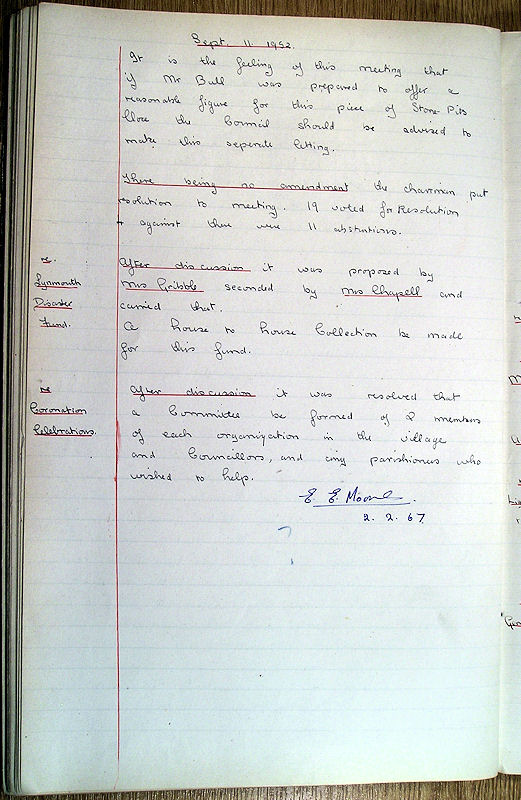 Sept. 11. 1952.
It is the feeling of this meeting that
if Mr Bull was prepared to offer a
reasonable figure for this piece of Stone-Pits
Close the Council should be advised to
make this seperate letting.
There being no amendment the chairman put
resolution to meeting. 19 voted for Resolution
+ against there were 11 abstentions.
re
Lynmouth
Disaster
Fund.
After discussion it was proposed by
Mrs Gribble seconded by Mrs Chapell and
carried that.
A house to house Collection be made
for this fund.
re
Coronation
Celebrations.
After discussion it was resolved that
a Committee be formed of 2 members
of each organization in the village
and Councillors, and any parishioners who
wished to help.
E. E. Moore.
2. 2. 67.